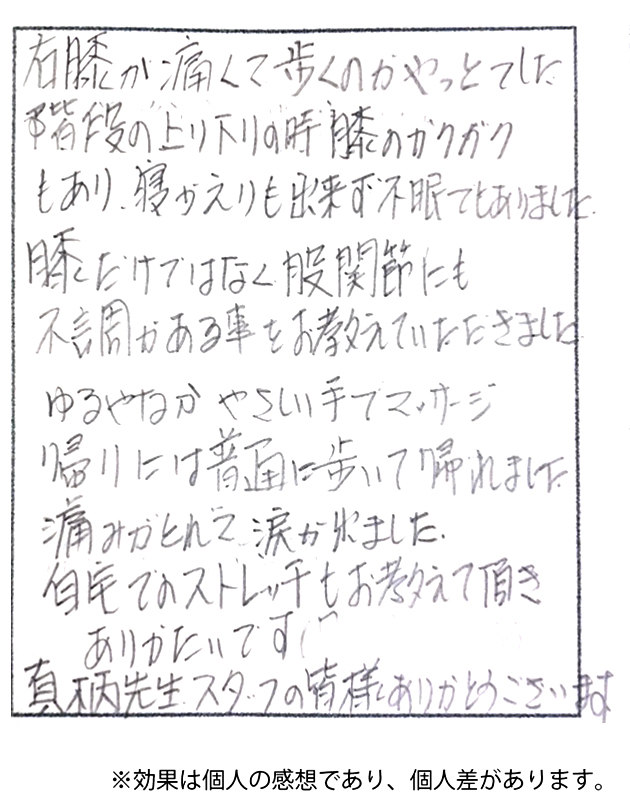 右膝が痛くて歩くのがやっとでした
階段の上り下りの時膝のガクガク
もあり、寝がえりも出来ず不眠でもありました。
膝だけではなく股関節にも
不調がある事をお教えていただきました
ゆるやなか やさしい手でマッサージ
帰りには普通に歩いて帰れました
痛みがとれて 涙が出ました。
自宅でのストレッチもお教えて頂き
ありがたいです
真柄先生 スタッフの皆様ありがとうございます
※効果は個人の感想であり、個人差があります。